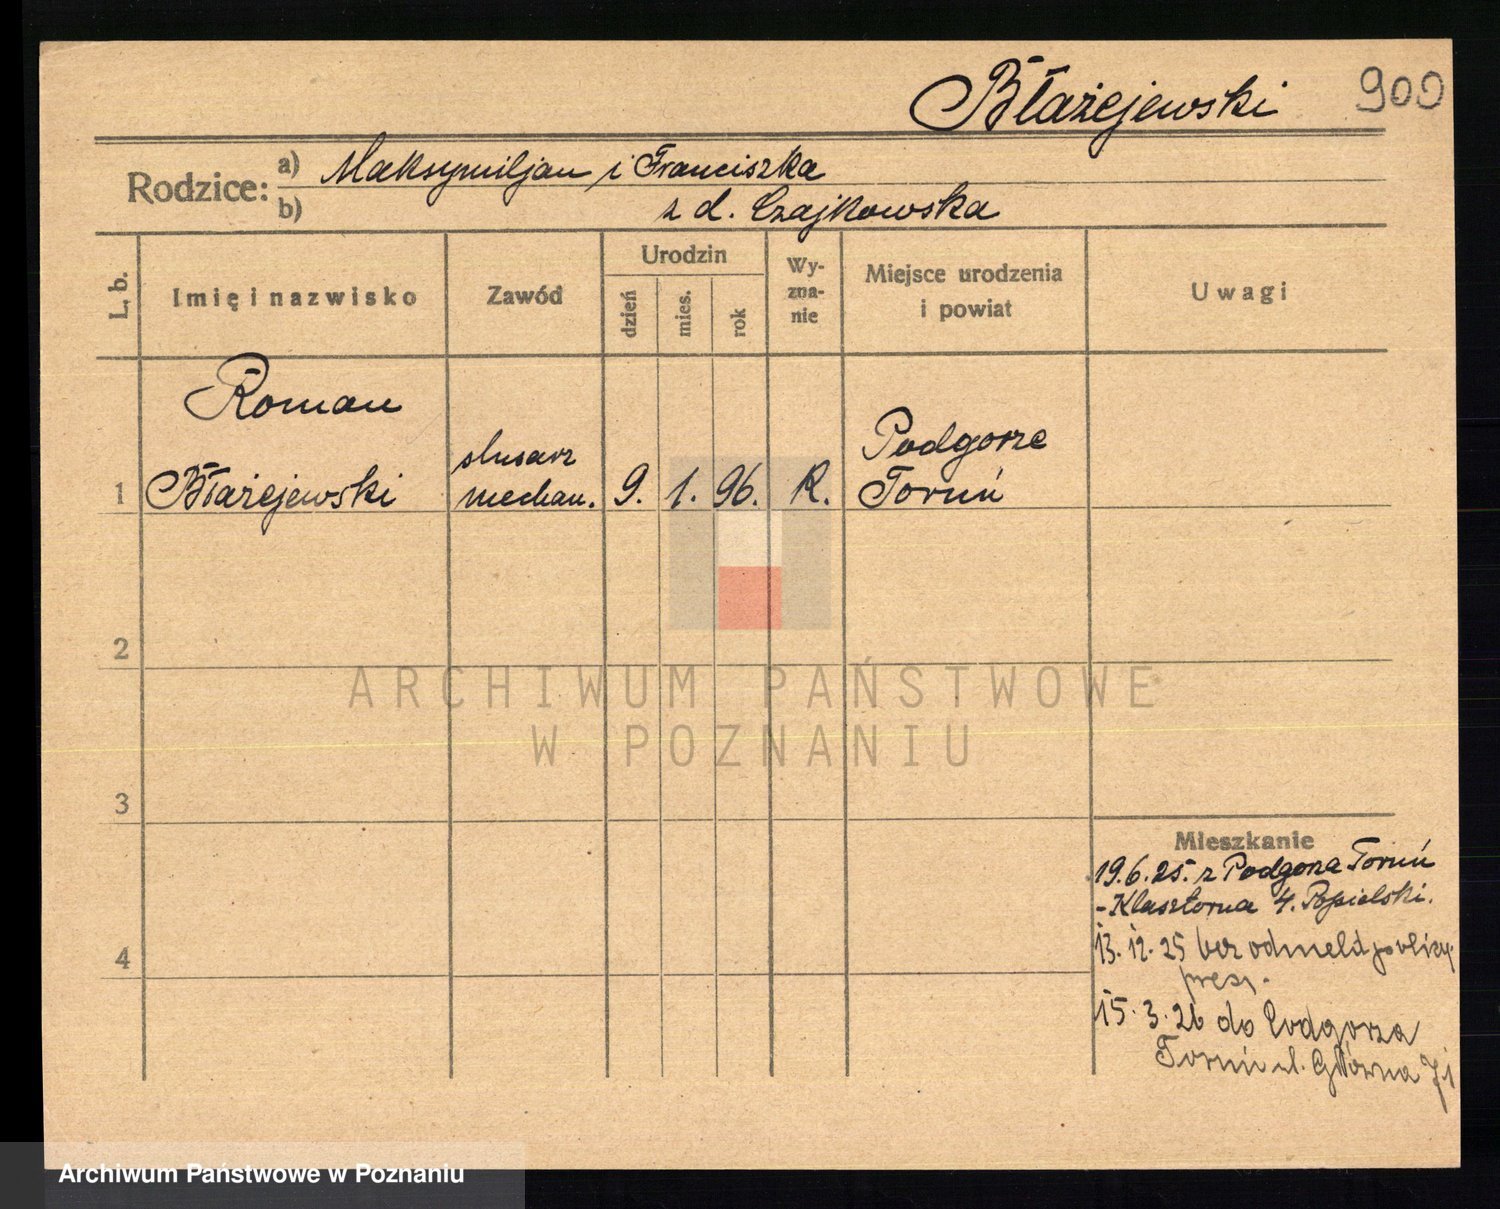 Błażejewski 909
Rodzice: a) Maksymiljan i Franciszka
b) z d. Czajkowska
L. b. Imię i nazwisko Zawód Urodzin dzień mies. rok Wy-zna-nie Miejsce urodzenia i powiat Uwagi
Roman
ślusarz Podgorze
1 Błażejewski mechan. 9. 1. 96. R. Toruń
2
ARCHIWUM PAŃSTWOWE
W POZNANIU
3
Mieszkanie
19.6.25. z Podgorza Toruń
- Klasztorna 4. Popielski.
4
13.12.25 bez odmeld
15.3.26 do Podgorza
Toruń ul. Główna 71
Archiwum Państwowe w Poznaniu